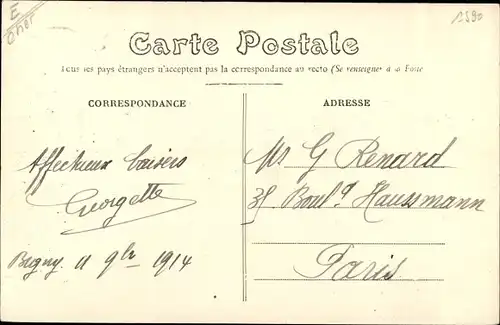 E
1590
Carte Postale
Tous les pays étrangers n'acceptent pas la correspondance au recto (Se renseigner à la Poste
CORRESPONDANCE
ADRESSE
Affectueux baisers
Georgette
11 9bre 1914
Mr G Renard
35 Boulᵈ Haussmann
Paris